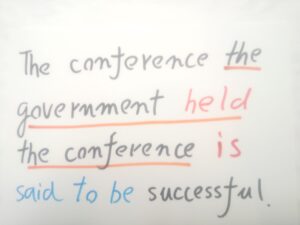 The conference the
government held
the conference is
said to be successful.